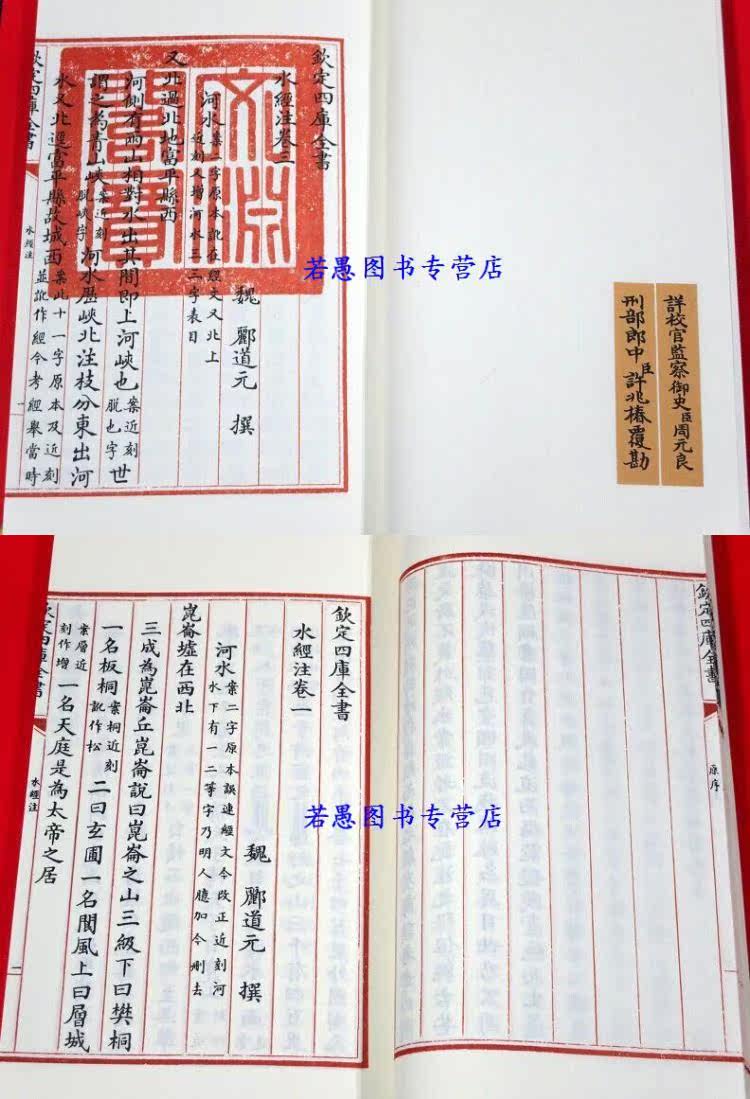 詳校官監察御史臣周元良
刑部郎中臣許兆椿覆勘
欽定四庫全書
水經注卷三
魏 酈道元 撰
河水案二字原本訛在經文又北上近刻又增河水三三字表目
又北過北地富平縣西
河側有兩山相對水出其間即上河峽也案近刻脱也字世
謂之為青山峽案近刻脱峽字河水歷峽北注枝分東出河
水又北逕富平縣故城西案此十一字原本及近刻並訛作經今考經舉當時
欽定四庫全書
水經注
文淵閣寶
若愚图书专营店
欽定四庫全書
原序
欽定四庫全書
水經注卷一
魏 酈道元 撰
河水案二字原本誤連經文今改正近刻河水下有一二等字乃明人臆加今刪去
崑崙墟在西北
三成為崑崙丘崑崙說曰崑崙之山三級下曰樊桐
一名板桐案桐近刻訛作松二曰玄圃一名閬風上曰層城
案層近刻作增一名天庭是為太帝之居
欽定四庫全書
水經注
一
若愚图书专营店